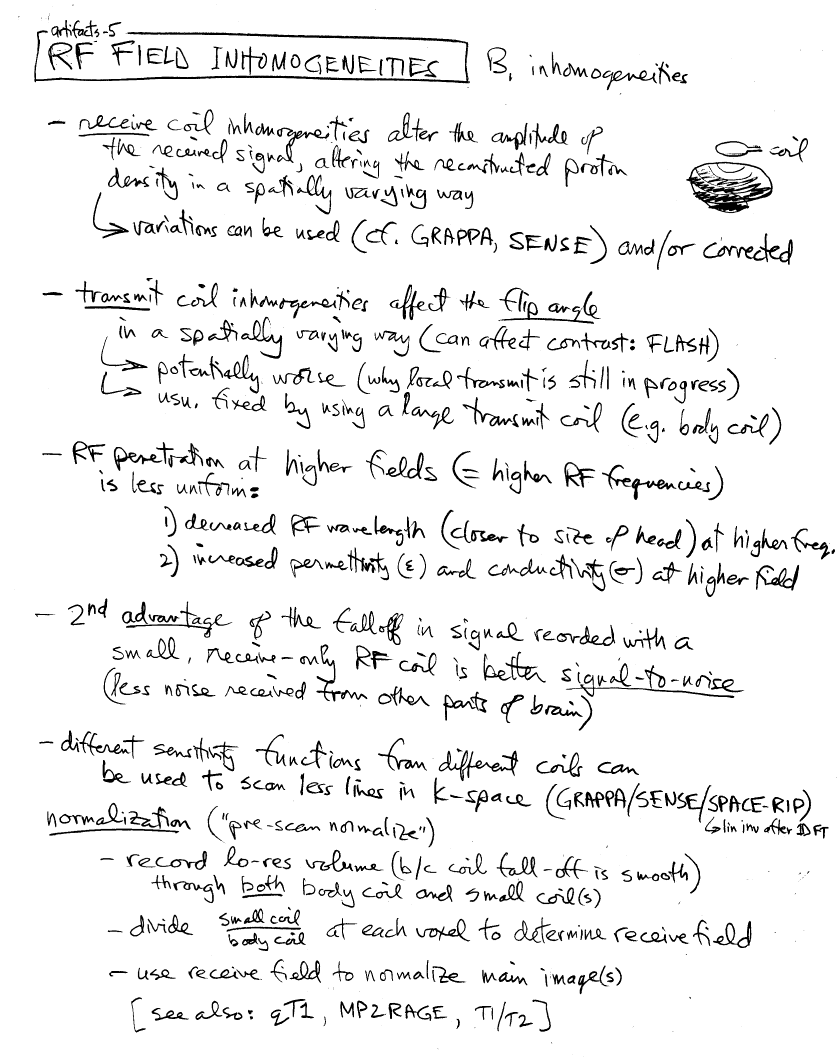 artifacts-5
RF FIELD INHOMOGENEITIES B₁ inhomogeneities
– receive coil inhomogeneities alter the amplitude of
the received signal, altering the reconstructed proton
density in a spatially varying way
coil
↳ variations can be used (cf. GRAPPA, SENSE) and/or corrected
– transmit coil inhomogeneities affect the flip angle
in a spatially varying way (can affect contrast: FLASH)
↳ potentially worse (why local transmit is still in progress)
↳ usu. fixed by using a large transmit coil (e.g. body coil)
– RF penetration at higher fields (= higher RF frequencies)
is less uniform:
1) decreased RF wavelength (closer to size of head) at higher freq.
2) increased permettivity (ε) and conductivity (σ) at higher field
– 2nd advantage of the falloff in signal recorded with a
small, receive-only RF coil is better signal-to-noise
(less noise received from other parts of brain)
– different sensitivity functions from different coils can
be used to scan less lines in k-space (GRAPPA/SENSE/SPACE-RIP)
↳ lin inv after 1D FT
normalization ("pre-scan normalize")
– record lo-res volume (b/c coil fall-off is smooth)
through both body coil and small coil(s)
– divide small coil / body coil at each voxel to determine receive field
– use receive field to normalize main image(s)
[see also: qT1, MP2RAGE, T1/T2]